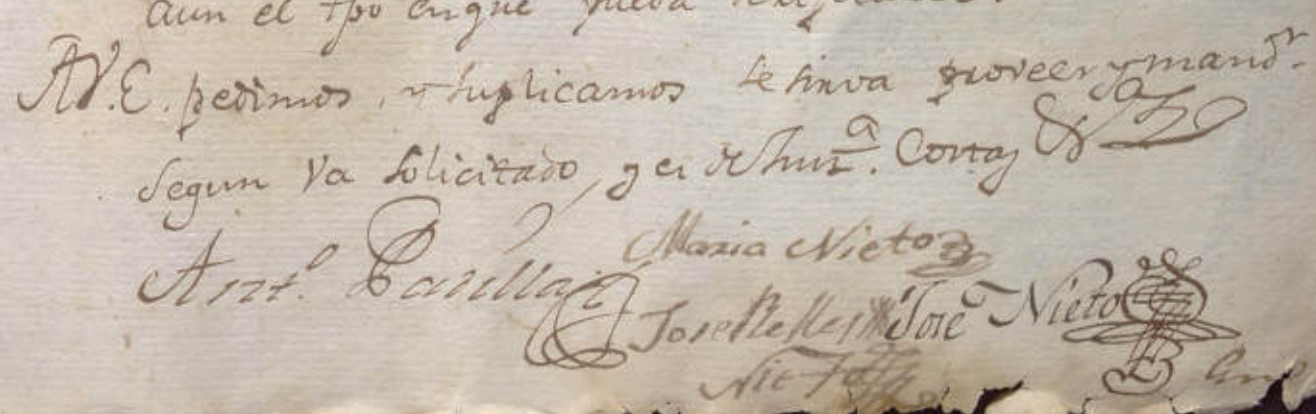 aun el tpo en que pueda
A V.E. pedimos, y suplicamos se sirva proveer y mandr.
segun va solicitado, y es de Jura. Costas &a
Anto. Padilla
Maria Nieto
Jose Nieto
Nieto